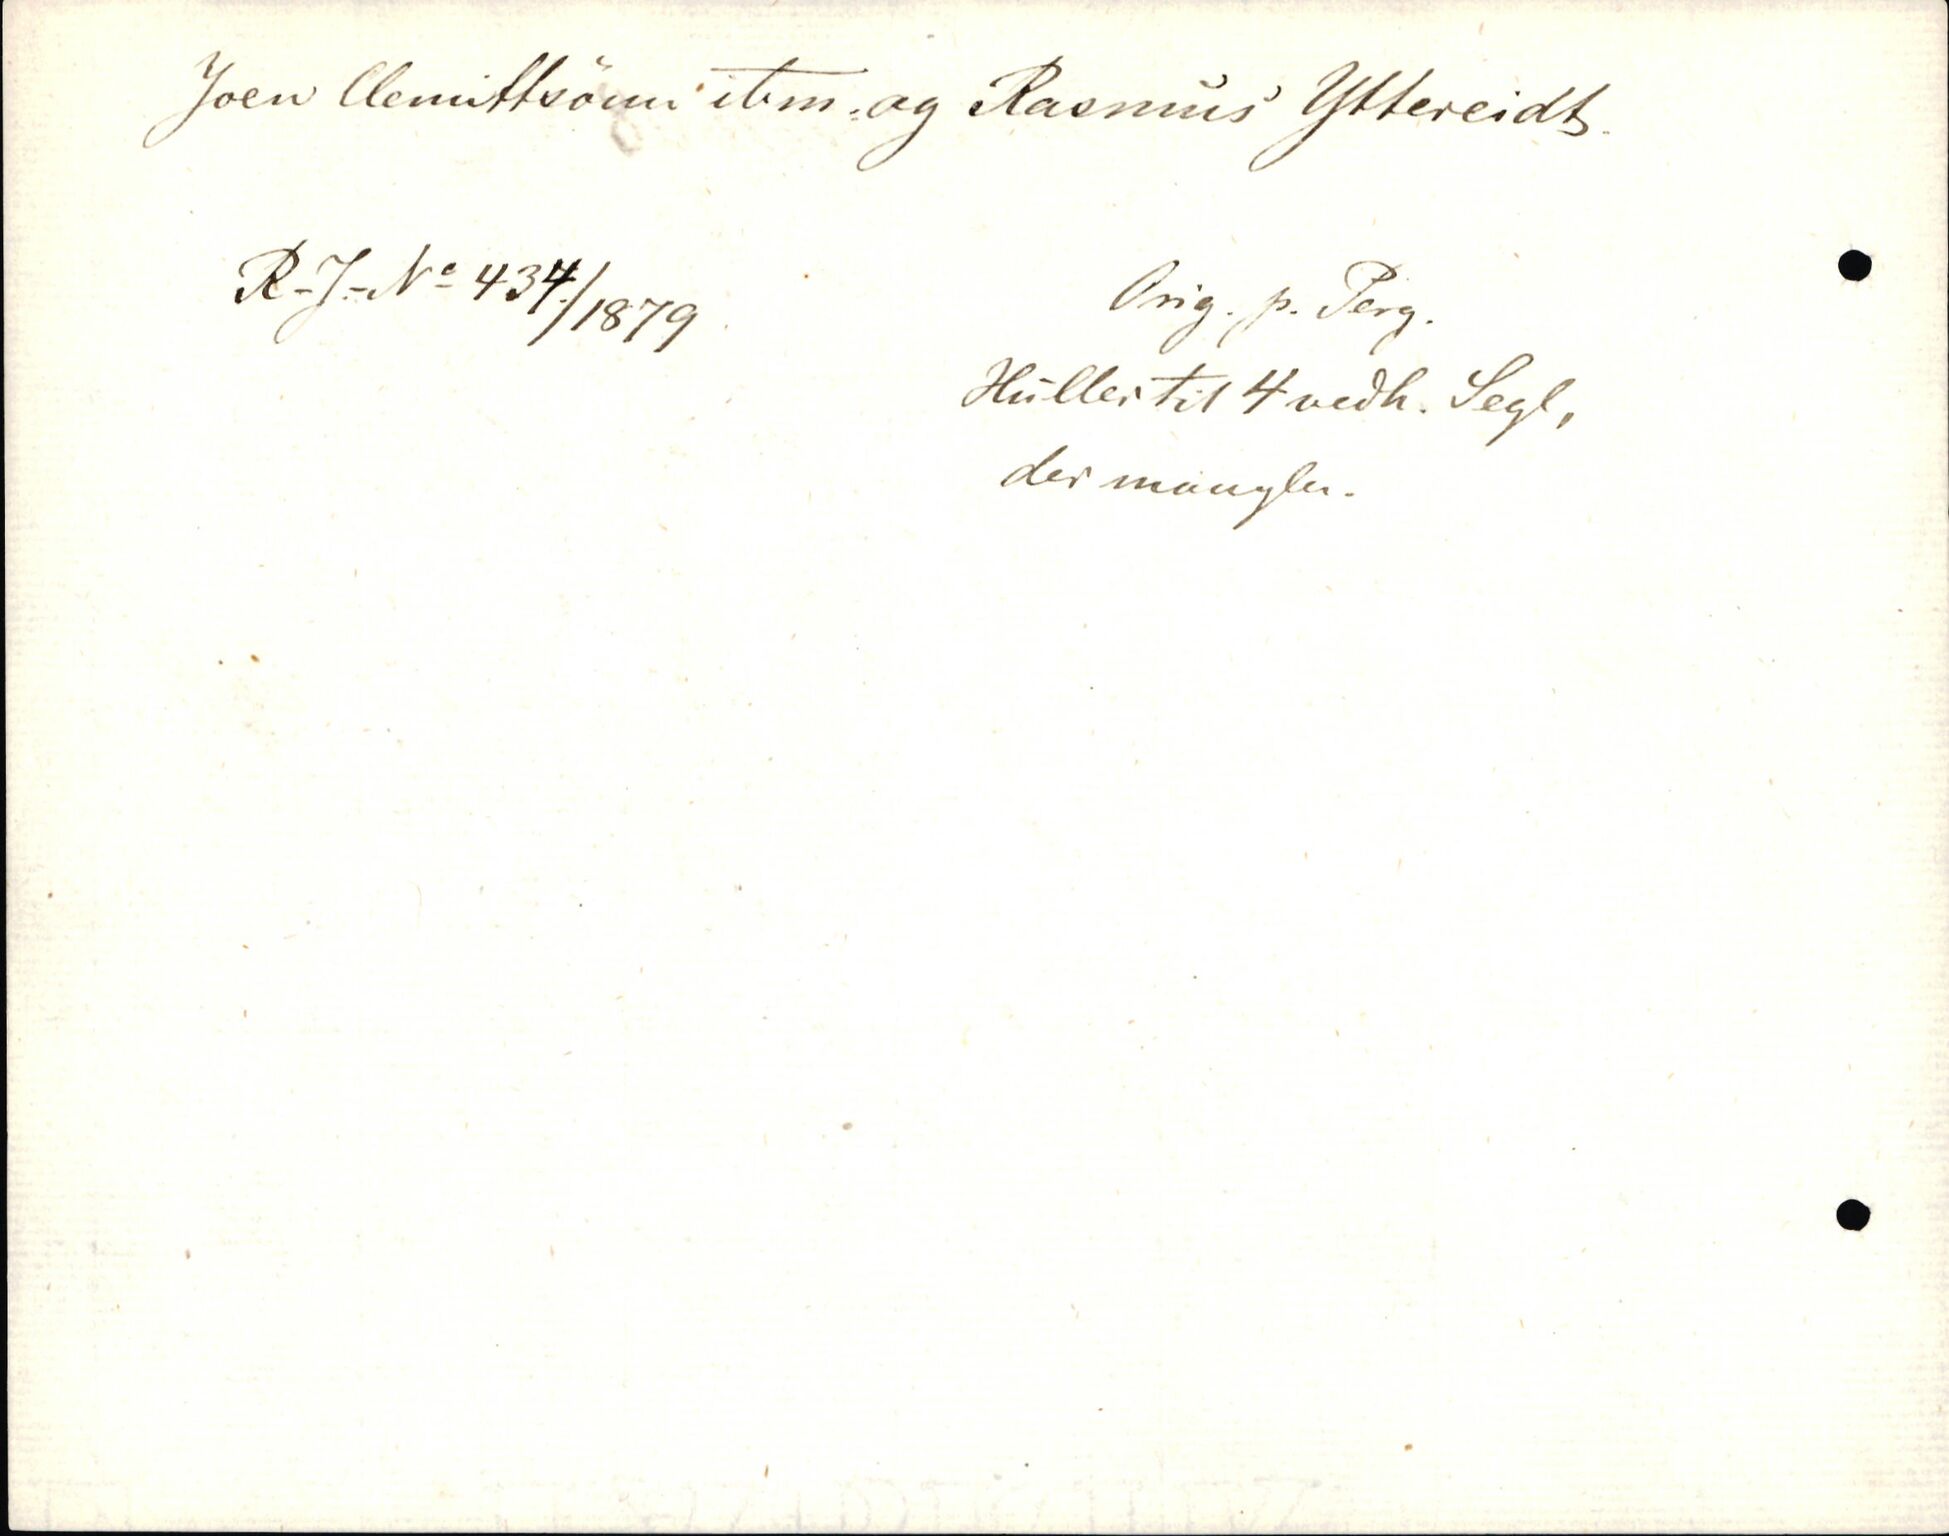 Joen Clemittsönn ibm. og Rasmus Yttereidt.
R-J-No 434/1879
Orig. p. Perg.
Huller til 4 vedh. Segl,
der mangler.